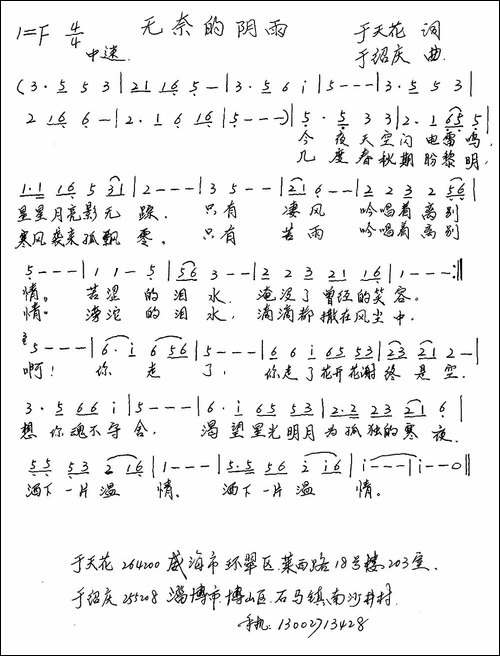 1=F 4/4 无奈的阴雨 于天花 词
中速. 于绍庆 曲.
(3·5 5 3 | 21 16 5 - | 3·5 6 i | 5 - - - | 3·5 5 3 |
2 16 6 - | 2·1 6 16 | 5 - - -) | 5·5 3 3 | 2·1 65 5 |
今夜天空闪电雷鸣,
几度春秋期盼黎明,
1·1 16 5 31 | 2 - - - | 3 5 - - | 21 6 - - | 2 2 3 2 56 |
星星月亮影无踪. 只有 凄风 吟唱着离别
寒风袭来孤飘零. 只有 苦雨 吟唱着离别
5 - - - | 1 1 - 5 | 56 3 - - | 2 2 3 21 16 | 1 - - - :||
情。 苦涩的泪水. 淹没了曾经的笑容.
情. 滂沱的泪水, 滴滴都撒在风尘中.
5 - - - | 6·i 6 56 | 5 - - - | 6 6 i 65 53 | 23 21 2 - |
啊! 你走了, 你走了花开花谢终是空.
3·5 6 6 i | 5 - - - | 6·i 65 53 | 2·2 23 21 6 |
想你魂不守舍, 渴望星光明月为孤独的寒夜.
55 53 2 16 | 1 - - - | 5·5 56 2 i6 | i - - - | i - - 0 ||
洒下一片温情, 洒下一片温情.
于天花 264200 威海市环翠区莱西路18号楼203室.
于绍庆 255208 淄博市博山区石马镇南沙井村
手机: 13002713428